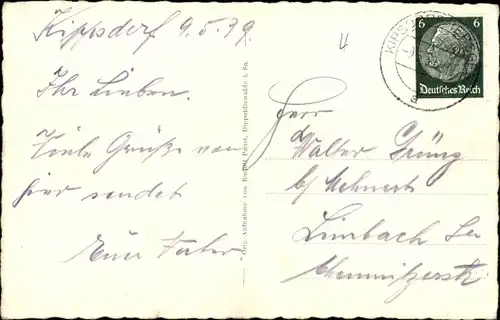 Kippsdorf 9.5.39
Ihr Lieben.
Viele Grüße von
hier sendet
Euer Vater
Orig.-Aufnahme von Rudolf Dippoldiswalde i. Sa.
6 6
Deutsches Reich
KIPSDORF
Herr
Walter Grünz
b/ Mehnert
Limbach Sa
Chemnitzerstr